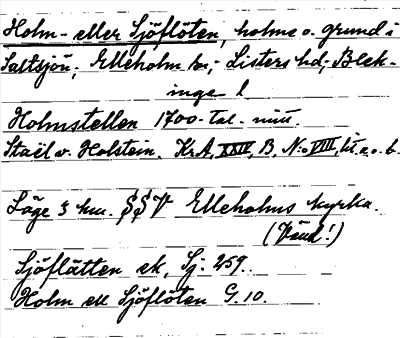 Holm- eller Sjöflöten, holme o. grund i
Saltsjön; Elleholm sn; Listers hd; Blek-
inge l.
Holmstellen 1700-tal.
Stael v. Holstein. KrA, XXIV, B. N:o VIII, lit. a. o. b.
Läge 3 km. SSV Elleholms kyrka.
(Vänd!)
Sjöflätten ek, Sj. 259.
Holm ell Sjöflöten G. 10.